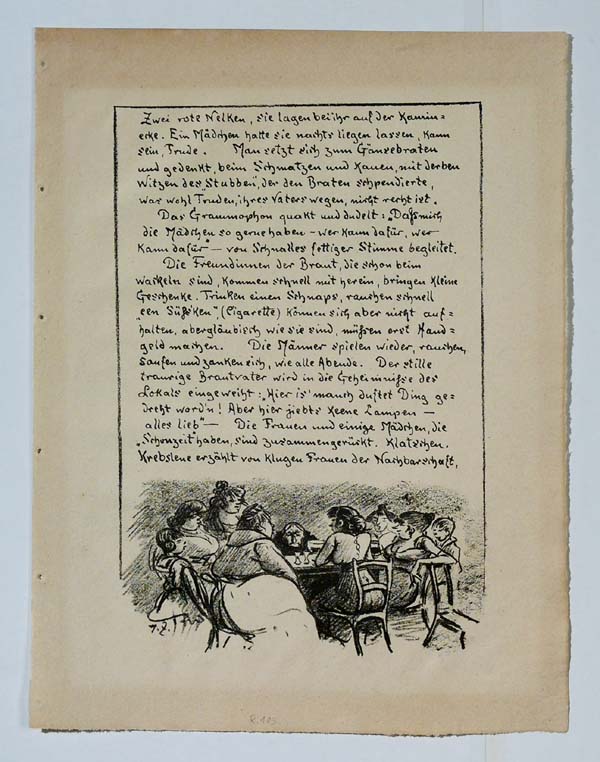 Zwei rote Nelken, sie lagen bei ihr auf der Kamin=
ecke. Ein Mädchen hatte sie nachts liegen lassen, kann
sein, Trude. Man setzt sich zum Gänsebraten
und gedenkt, beim Schmatzen und Kauen, mit derben
Witzen des „Stubben", der den Braten schpendierte,
was wohl Truden, ihres Vaters wegen, nicht recht ist.
Das Grammophon quakt und dudelt: „Daß mich
die Mädchen so gerne haben – wer kann dafür, wer
kann dafür" – von Schnalles fettiger Stimme begleitet.
Die Freundinnen der Braut, die schon beim
wackeln sind, kommen schnell mit herein, bringen kleine
Geschenke. Trinken einen Schnaps, rauchen schnell
„een Süßken" (Cigarette) können sich aber nicht auf=
halten, abergläubisch wie sie sind, müßen erst Hand=
geld machen. Die Männer spielen wieder, rauchen,
saufen und zanken sich, wie alle Abende. Der stille
traurige Brautvater wird in die Geheimniße des
Lokals eingeweiht: „Hier is' manch duftet Ding ge=
dreht word'n! Aber hier jiebts keene Lampen –
alles lieb" – Die Frauen und einige Mädchen, die
„Schonzeit" haben, sind zusammengerückt. Klatschen.
Krebslene erzählt von klugen Frauen der Nachbarschaft,